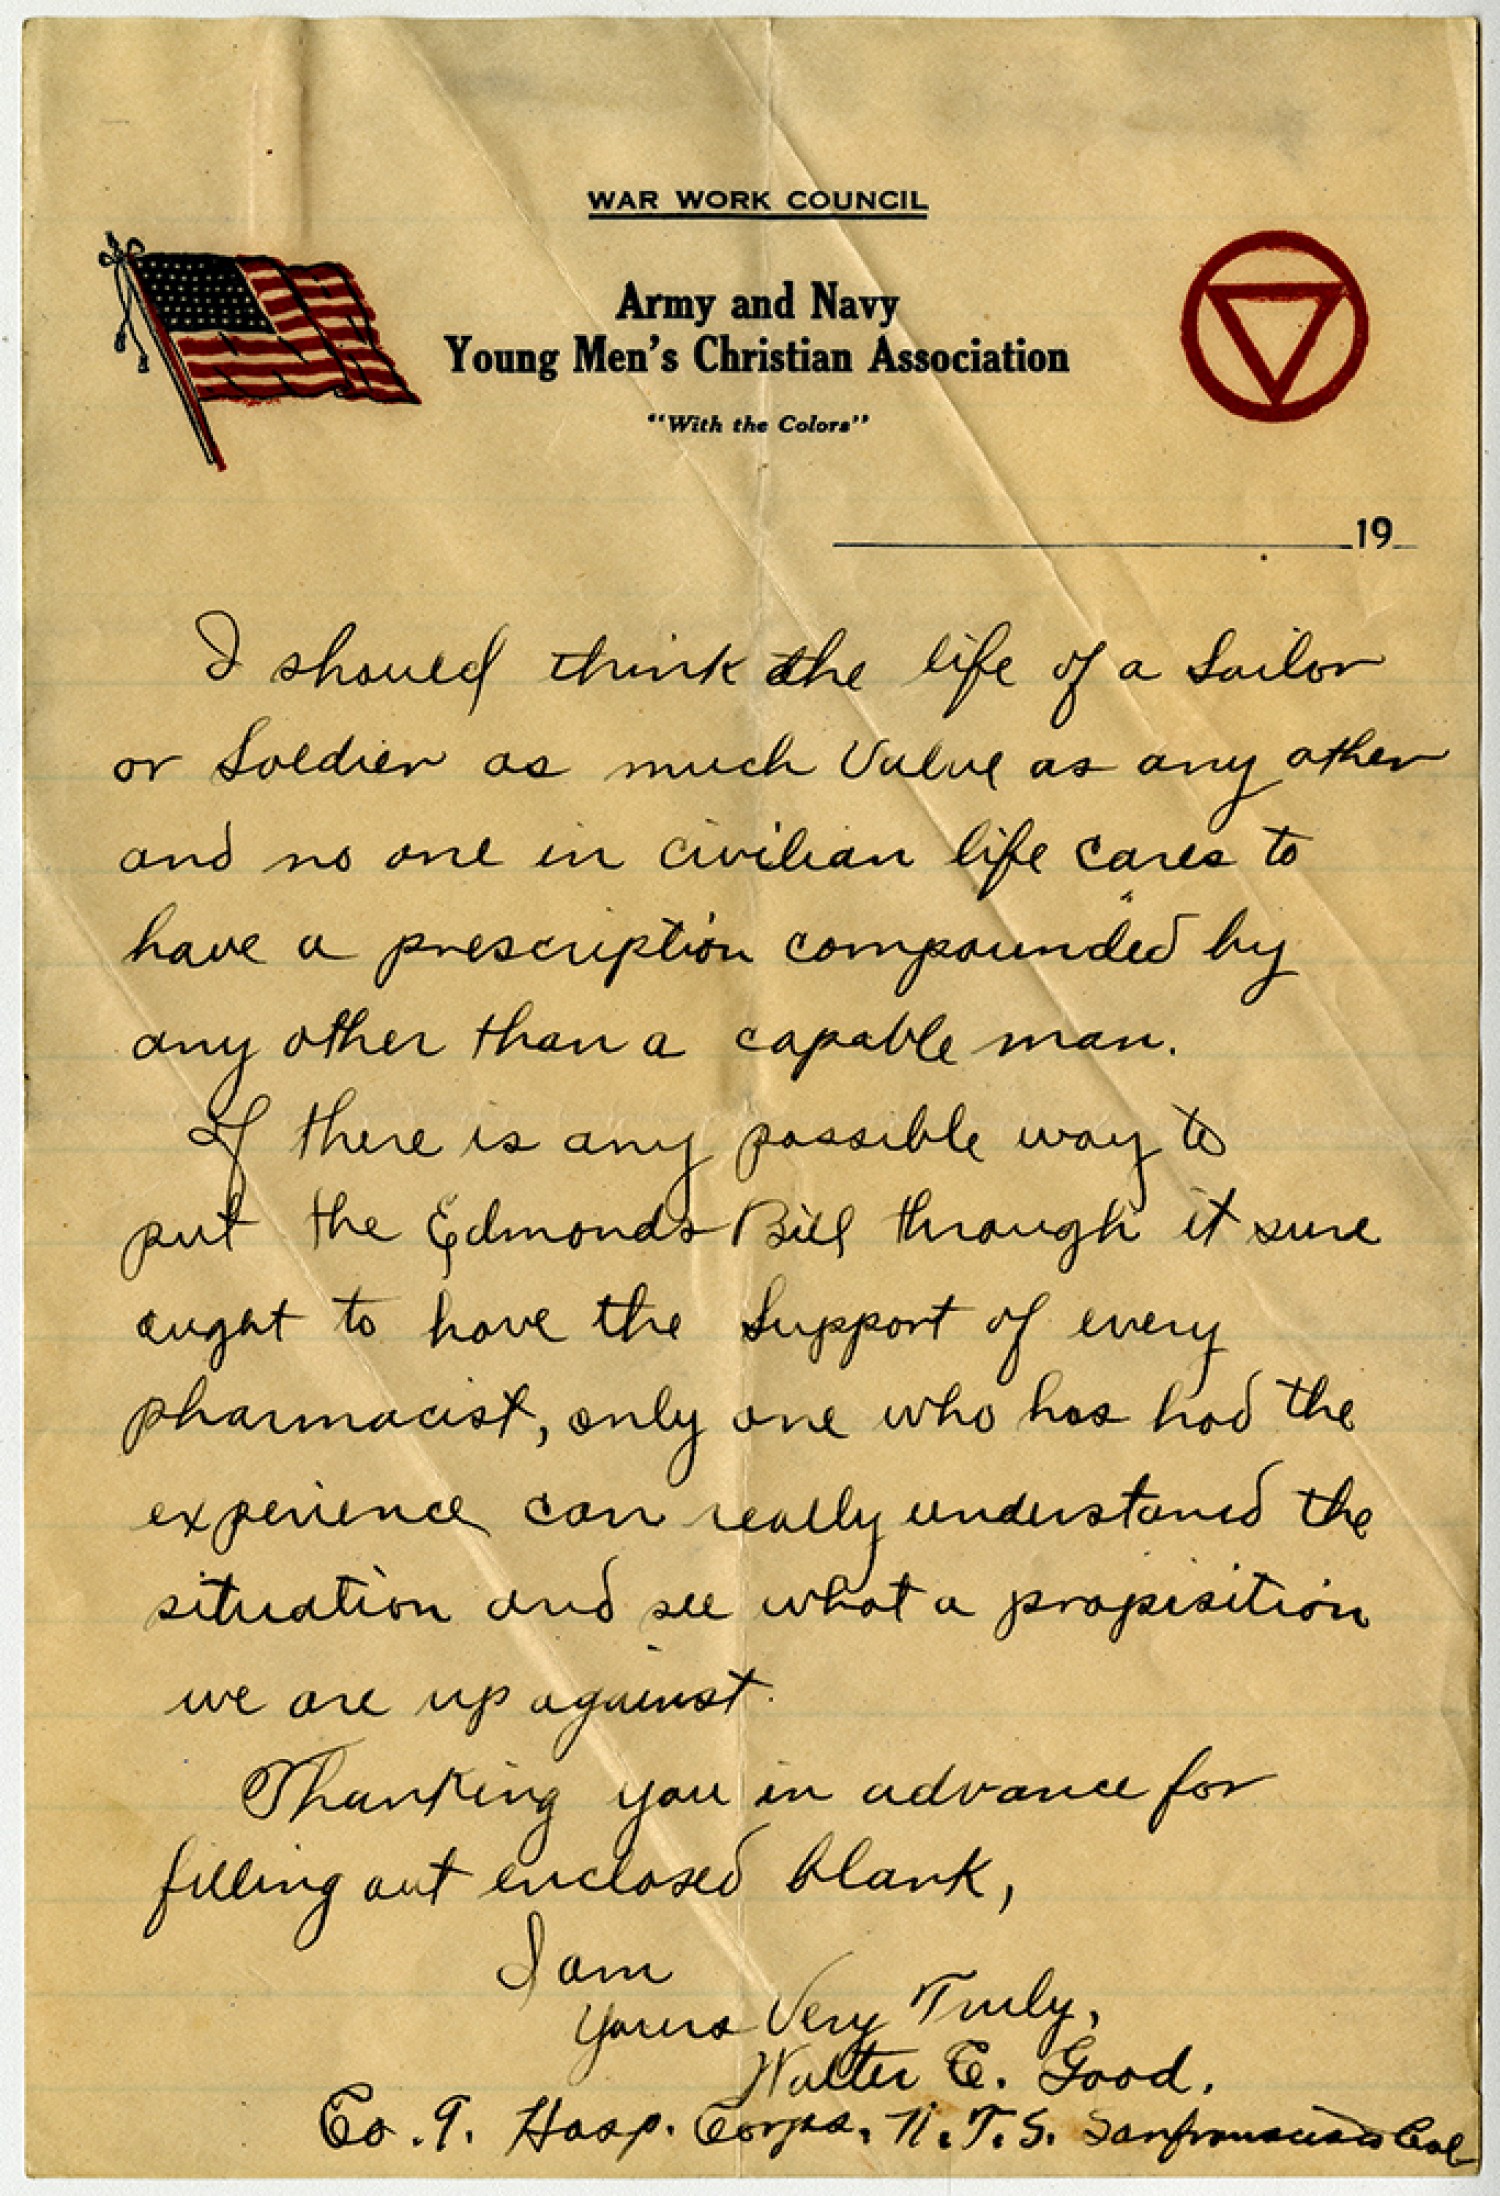 WAR WORK COUNCIL
Army and Navy
Young Men's Christian Association
"With the Colors"
19
I should think the life of a Sailor
or Soldier as much Value as any other
and no one in civilian life cares to
have a prescription compounded by
any other than a capable man.
If there is any possible way to
put the Edmonds Bill through it sure
aught to have the Support of every
pharmacist, only one who has had the
experience can really understand the
situation and see what a propisition
we are up against.
Thanking you in advance for
filling out enclosed blank,
I am
Yours Very Truly,
Walter E. Good.
Co. 9. Hosp. Corps. N.T.S. Sanfrancisco Cal